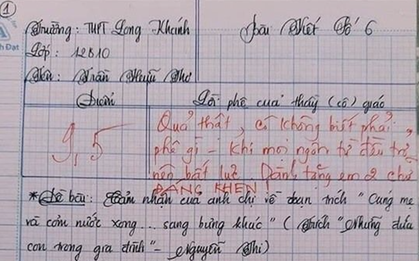 1
Trường: THPT Long Khánh
Bài Viết Số 6
Lớp: 12B10
Tên: Trần Hữu Thơ
Điểm
Lời phê của thầy (cô) giáo
9,5
Quả thật, cô không biết phải
phê gì - khi mọi ngôn từ đều trở
nên bất lực. Dành tặng em 2 chữ
ĐÁNG KHEN!
*Đề bài: Cảm nhận của anh chị về đoạn trích "Cúng mẹ
và cơm nước xong... sang bưng khác" (Trích "Những đứa
con trong gia đình" - Nguyễn Thi)